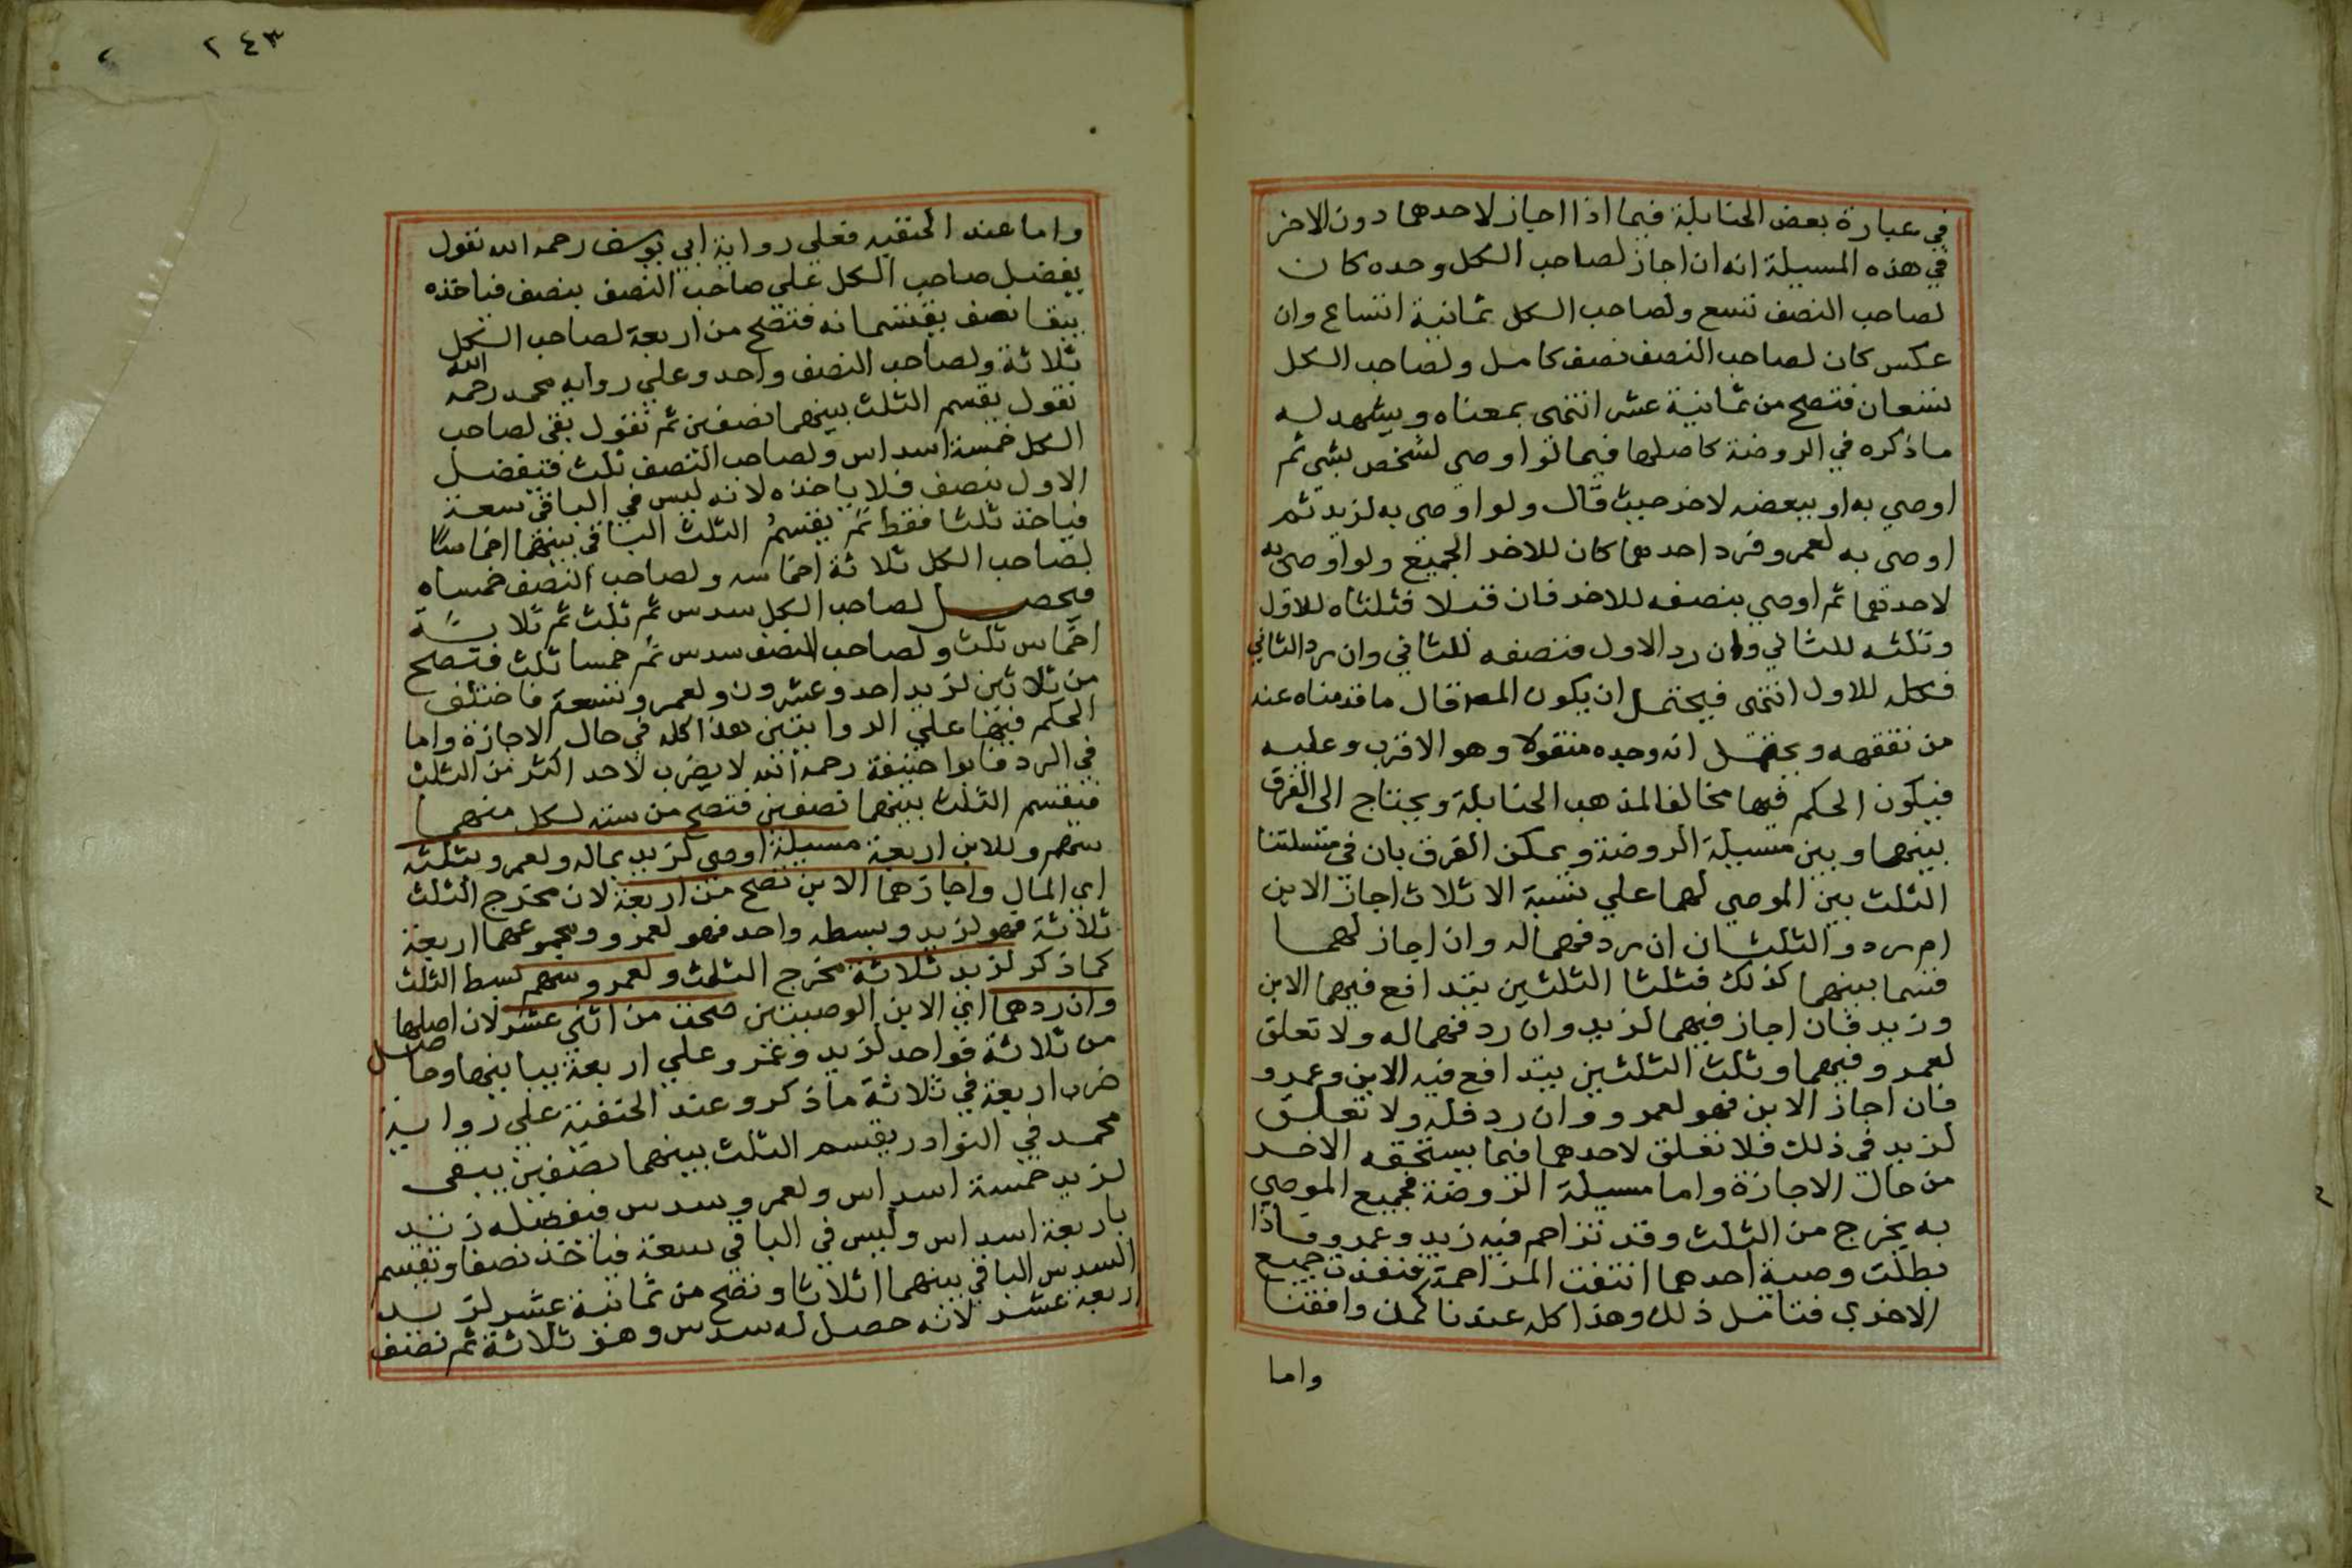 في عبارة بعض الحنابلة فيما اذا اجاز لاحدهما دون الاخر
في هذه المسيلة انه ان اجاز لصاحب الكل وحده كان
لصاحب النصف تسع ولصاحب الكل ثمانية اتساع وان
عكس كان لصاحب النصف نصف كامل ولصاحب الكل
تسعان فتصح من ثمانية عشر انتهى بمعناه ويشهد له
ماذكره في الروضة كاصلها فيما لو اوصي لشخص بشي ثم
اوصي به او ببعضه لاخر حيث قال ولو اوصي به لزيد ثم
اوصي به لعمرو فرد احدهما كان للاخر الجميع ولو اوصي به
لاحدهما ثم اوصي بنصفه للاخر فان قبلا فثلثاه للاول
وثلثه للثاني وان رد الاول فنصفه للثاني وان رد الثاني
فكله للاول انتهى فيحتمل ان يكون المص قال ماقدمناه عنه
من تفقهه ويحتمل انه وجده منقولا وهو الاقرب وعليه
فيكون الحكم فيها مخالفا لمذهب الحنابلة ويحتاج الى الفرق
بينها وبين مسيلة الروضة ويمكن الفرق بان في مسئلتنا
الثلث بين الموصي لهما علي نسبة الاثلاث اجاز الابن
ام رد والثلثان ان رد فهما له وان اجاز لهما
قسما بينهما كذلك فثلثا الثلثين يتدافع فيهما الابن
وزيد فان اجاز فيهما لزيد وان رد فهما له ولا تعلق
لعمرو فيهما وثلث الثلثين يتدافع فيه الابن وعمرو
فان اجاز الابن فهو لعمرو وان رد فله ولا تعلق
لزيد في ذلك فلا تعلق لاحدهما فيما يستحقه الاخر
من حال الاجازة واما مسيلة الروضة فجميع الموصي
به يخرج من الثلث وقد تزاحم فيه زيد وعمرو فاذا
بطلت وصية احدهما انتفت المزاحمة فنفذت جميع
الاخري فتامل ذلك وهذا كله عندنا كمن وافقنا
واما
٢٤٣
واما عند الحنفيه فعلي رواية ابي يوسف رحمه الله نقول
يفضل صاحب الكل علي صاحب النصف بنصف فياخذه
يبقا نصف يقتسمانه فتصح من اربعة لصاحب الكل
ثلاثة ولصاحب النصف واحد وعلي روايه محمد رحمه الله
نقول يقسم الثلث بينهما نصفين ثم نقول بقي لصاحب
الكل خمسة اسداس ولصاحب النصف ثلث فيفضل
الاول بنصف فلا ياخذه لانه ليس في الباقي سعة
فياخذ ثلثا فقط ثم يقسم الثلث الباقي بينهما اخماسا
لصاحب الكل ثلاثة اخماسه ولصاحب النصف خمساه
فيحصل لصاحب الكل سدس ثم ثلث ثم ثلاثة
اخماس ثلث ولصاحب النصف سدس ثم خمسا ثلث فتصح
من ثلاثين لزيد احد وعشرون ولعمرو تسعة فاختلف
الحكم فيها علي الروايتين هذا كله في حال الاجازة واما
في الرد فابوا حنيفة رحمه الله لا يضرب لاحد اكثر من الثلث
فيقسم الثلث بينهما نصفين فتصح من سته لكل منهما
سهم وللابن اربعة مسيلة اوصي لزيد بماله ولعمرو بثلثه
اي المال واجازهما الابن تصح من اربعة لان مخرج الثلث
ثلاثة فهو لزيد وبسطه واحد فهو لعمرو ومجموعهما اربعة
كما ذكر لزيد ثلاثة مخرج الثلث ولعمرو سهم بسط الثلث
وان ردهما اي الابن الوصيتين صحت من اثني عشر لان اصلها
من ثلاثة فواحد لزيد وعمرو علي اربعة يباينها وحاصل
ضرب اربعة في ثلاثة ماذكر وعند الحنفية علي رواية
محمد في النوادر يقسم الثلث بينهما نصفين يبقى
لزيد خمسة اسداس ولعمرو سدس فيفضله زيد
باربعة اسداس وليس في الباقي سعة فياخذ نصفا ويقسم
السدس الباقي بينهما اثلاثا وتصح من ثمانية عشر لزيد
اربعة عشر لانه حصل له سدس وهو ثلاثة ثم نصف